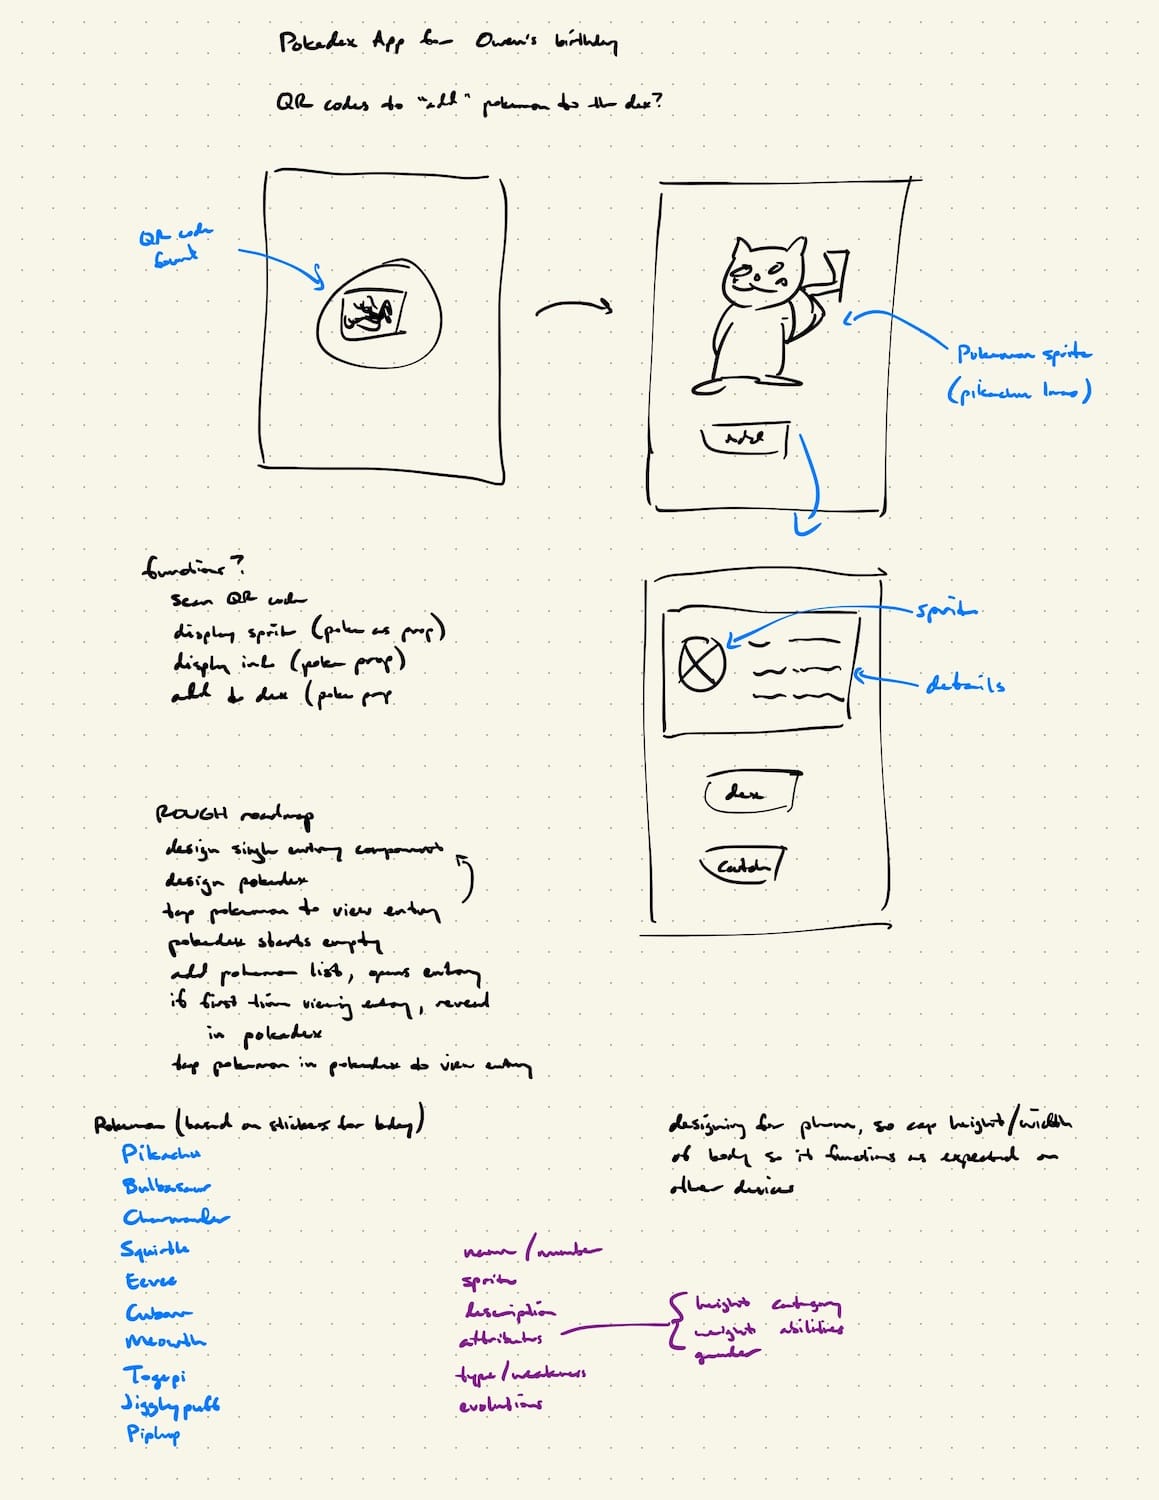 Pokedex App for Owen's birthday
QR codes to "add" pokemon to the dex?
QR code
found
Pokemon sprite
(pikachu lmao)
add
functions?
scan QR code
display sprite (poke as prop)
display info (poke prop)
add to dex (poke prop
sprite
details
dex
catch
ROUGH roadmap
design single entry component
design pokedex
tap pokemon to view entry
pokedex starts empty
add pokemon list, opens entry
if first time viewing entry, reveal
in pokedex
tap pokemon in pokedex to view entry
Pokemon (based on stickers for bday)
Pikachu
Bulbasaur
Charmander
Squirtle
Eevee
Cubone
Meowth
Togepi
Jigglypuff
Piplup
designing for phone, so cap height/width
of body so it functions as expected on
other devices
name/number
sprite
description
attributes
type/weakness
evolutions
height category
weight abilities
gender